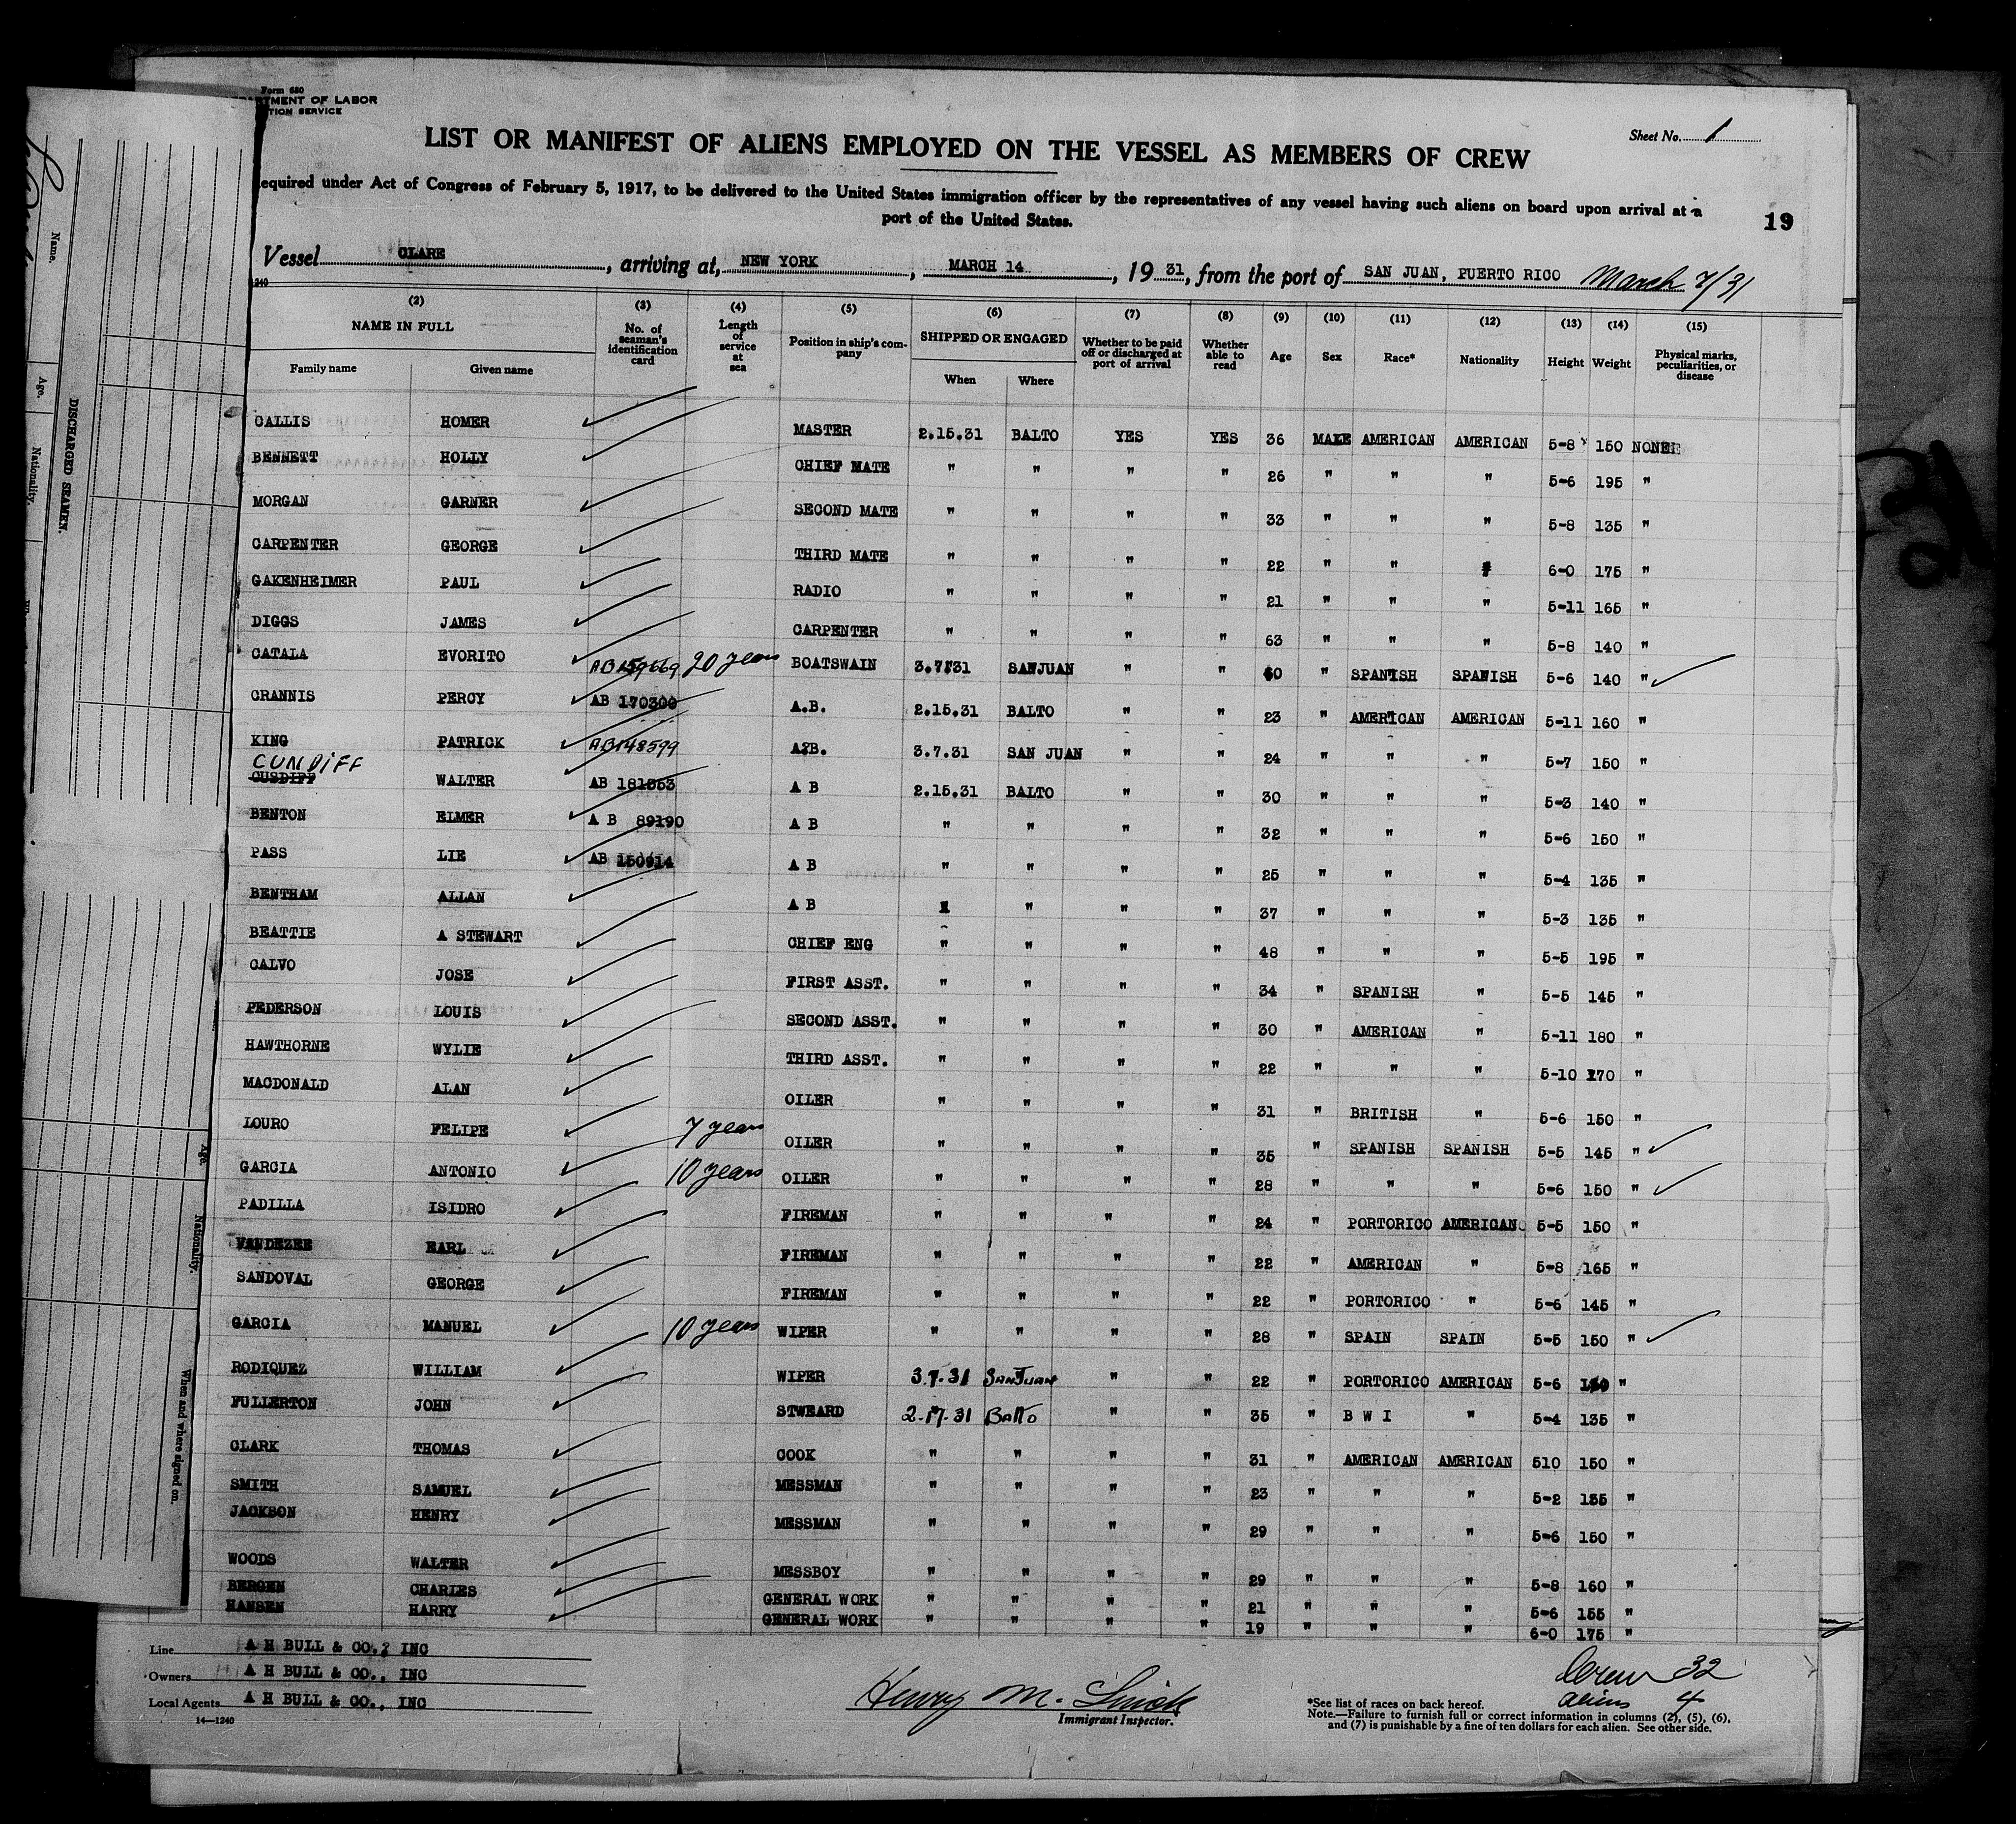 Form 680
TMENT OF LABOR
TION SERVICE
Sheet No. 1
LIST OR MANIFEST OF ALIENS EMPLOYED ON THE VESSEL AS MEMBERS OF CREW
equired under Act of Congress of February 5, 1917, to be delivered to the United States immigration officer by the representatives of any vessel having such aliens on board upon arrival at a
port of the United States.
19
Vessel CLARE, arriving at, NEW YORK, MARCH 14, 19 31, from the port of SAN JUAN, PUERTO RICO March 7/31
240
(2) (3) (4) (5) (6) (7) (8) (9) (10) (11) (12) (13) (14) (15)
NAME IN FULL No. of seaman's identification card Length of service at sea Position in ship's company SHIPPED OR ENGAGED Whether to be paid off or discharged at port of arrival Whether able to read Age Sex Race* Nationality Height Weight Physical marks, peculiarities, or disease
Family name Given name When Where
CALLIS HOMER MASTER 2.15.31 BALTO YES YES 36 MALE AMERICAN AMERICAN 5-8 150 NONE
BENNETT HOLLY CHIEF MATE " " " " 26 " " " 5-6 195 "
MORGAN GARNER SECOND MATE " " " " 33 " " " 5-8 135 "
CARPENTER GEORGE THIRD MATE " " " " 22 " " " 6-0 175 "
GAKENHEIMER PAUL RADIO " " " " 21 " " " 5-11 165 "
DIGGS JAMES CARPENTER " " " " 63 " " " 5-8 140 "
CATALA EVORITO AB 159669 20 years BOATSWAIN 3.7.31 SANJUAN " " 40 " SPANISH SPANISH 5-6 140 "
CRANNIS PERCY AB 170300 A.B. 2.15.31 BALTO " " 23 " AMERICAN AMERICAN 5-11 160 "
KING PATRICK AB148599 A.B. 3.7.31 SAN JUAN " " 24 " " " 5-7 150 "
CUNDIFF
CUSDIFF WALTER AB 181553 A B 2.15.31 BALTO " " 30 " " " 5-3 140 "
BENTON ELMER A B 89190 A B " " " " 32 " " " 5-6 150 "
PASS LIE AB 150914 A B " " " " 25 " " " 5-4 135 "
BENTHAM ALLAN A B " " " 37 " " " 5-3 135 "
BEATTIE A STEWART CHIEF ENG " " " " 48 " " " 5-5 195 "
CALVO JOSE FIRST ASST. " " " " 34 " SPANISH " 5-5 145 "
PEDERSON LOUIS SECOND ASST. " " " " 30 " AMERICAN " 5-11 180 "
HAWTHORNE WYLIE THIRD ASST. " " " " 22 " " " 5-10 170 "
MACDONALD ALAN OILER " " " " 31 " BRITISH " 5-6 150 "
LOURO FELIPE 7 years OILER " " " " 35 " SPANISH SPANISH 5-5 145 "
GARCIA ANTONIO 10 years OILER " " " " 28 " " " 5-6 150 "
PADILLA ISIDRO FIREMAN " " " " 24 " PORTORICO AMERICAN 5-5 150 "
VANDEZEE EARL FIREMAN " " " " 22 " AMERICAN " 5-8 165 "
SANDOVAL GEORGE FIREMAN " " " " 22 " PORTORICO " 5-6 145 "
GARCIA MANUEL 10 years WIPER " " " " 28 " SPAIN SPAIN 5-5 150 "
RODIQUEZ WILLIAM WIPER 3.7.31 SANJUAN " " 22 " PORTORICO AMERICAN 5-6 "
FULLERTON JOHN STWEARD 2.17.31 Balto " " 35 " B W I " 5-4 135 "
CLARK THOMAS COOK " " " " 31 " AMERICAN AMERICAN 510 150 "
SMITH SAMUEL MESSMAN " " " " 23 " " " 5-2 135 "
JACKSON HENRY MESSMAN " " " " 29 " " " 5-6 150 "
WOODS WALTER MESSBOY " " " " 29 " " " 5-8 160 "
BERGEN CHARLES GENERAL WORK " " " " 21 " " " 5-6 155 "
HANSEN HARRY GENERAL WORK " " " " 19 " " " 6-0 175 "
Line A H BULL & CO., INC
Owners A H BULL & CO., INC
Local Agents A H BULL & CO., INC
14—1240
Henry M.
Immigrant Inspector.
Crew 32
aliens 4
*See list of races on back hereof.
Note.—Failure to furnish full or correct information in columns (2), (5), (6),
and (7) is punishable by a fine of ten dollars for each alien. See other side.
Name.
Age.
Nationality.
DISCHARGED SEAMEN.
Age.
Nationality.
When and where signed on.